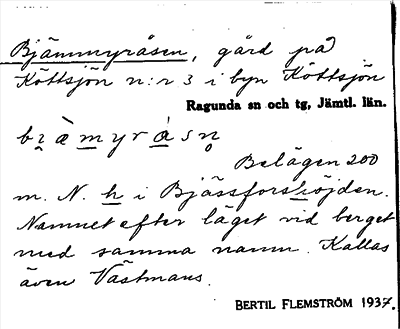 Bjämmyråsen, gård på
Köttsjön n:r 3 i byn Köttsjön
Ragunda sn och tg, Jämtl. län.
bi̯àmyrásn̥
Belägen 200
m. N. h i Bjässforshöjden.
Namnet efter läget vid berget
med samma namn. Kallas
även Västmans.
BERTIL FLEMSTRÖM 1937.